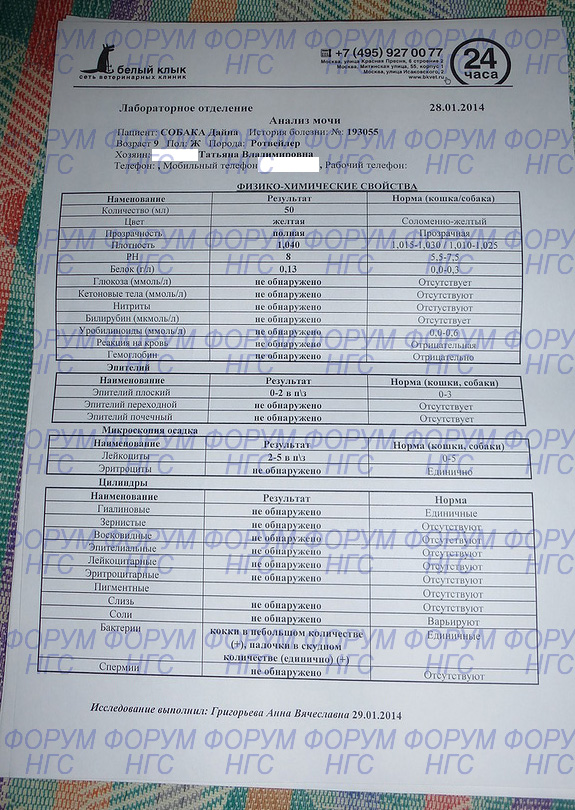 белый клык
сеть ветеринарных клиник
+7 (495) 927 00 77
Москва, улица Красная Пресня, 6 строение 2
Москва, Митинская улица, 55, корпус 1
Москва, улица Исаковского, 2
www.bkvet.ru
24 часа
Лабораторное отделение 28.01.2014
Анализ мочи
Пациент: СОБАКА Данна История болезни: №: 193055
Возраст 9 Пол: Ж Порода: Ротвейлер
Хозяин: Татьяна Владимировна
Телефон: , Мобильный телефон , Рабочий телефон:
ФИЗИКО-ХИМИЧЕСКИЕ СВОЙСТВА
Наименование Результат Норма (кошка/собака)
Количество (мл) 50
Цвет желтая Соломенно-желтый
Прозрачность полная Прозрачная
Плотность 1,040 1,015-1,030 / 1,010-1,025
PH 8 5,5-7,5
Белок (г/л) 0,13 0,0-0,3
Глюкоза (ммоль/л) не обнаружено Отсутствует
Кетоновые тела (ммоль/л) не обнаружено Отсутствуют
Нитриты не обнаружено Отсутствуют
Билирубин (мкмоль/л) не обнаружено Отсутствует
Уробилиноиды (ммоль/л) не обнаружено 0,0-0,6
Реакция на кровь не обнаружено Отрицательная
Гемоглобин не обнаружено Отрицательно
Эпителий
Наименование Результат Норма (кошки, собаки)
Эпителий плоский 0-2 в п\з 0-3
Эпителий переходной не обнаружено Отсутствует
Эпителий почечный не обнаружено Отсутствует
Микроскопия осадка
Наименование Результат Норма (кошки, собаки)
Лейкоциты 2-5 в п\з 0-5
Эритроциты не обнаружено Единично
Цилиндры
Наименование Результат Норма
Гиалиновые не обнаружено Единичные
Зернистые не обнаружено Отсутствуют
Восковидные не обнаружено Отсутствуют
Эпителиальные не обнаружено Отсутствуют
Лейкоцитарные не обнаружено Отсутствуют
Эритроцитарные не обнаружено Отсутствуют
Пигментные Отсутствуют
Слизь не обнаружено Отсутствуют
Соли не обнаружено Варьируют
Бактерии кокки в небольшом количестве Единичные
(+), палочки в скудном
количестве (единично) (+)
Спермии не обнаружено Отсутствуют
Исследование выполнил: Григорьева Анна Вячеславна 29.01.2014
ФОРУМ НГС